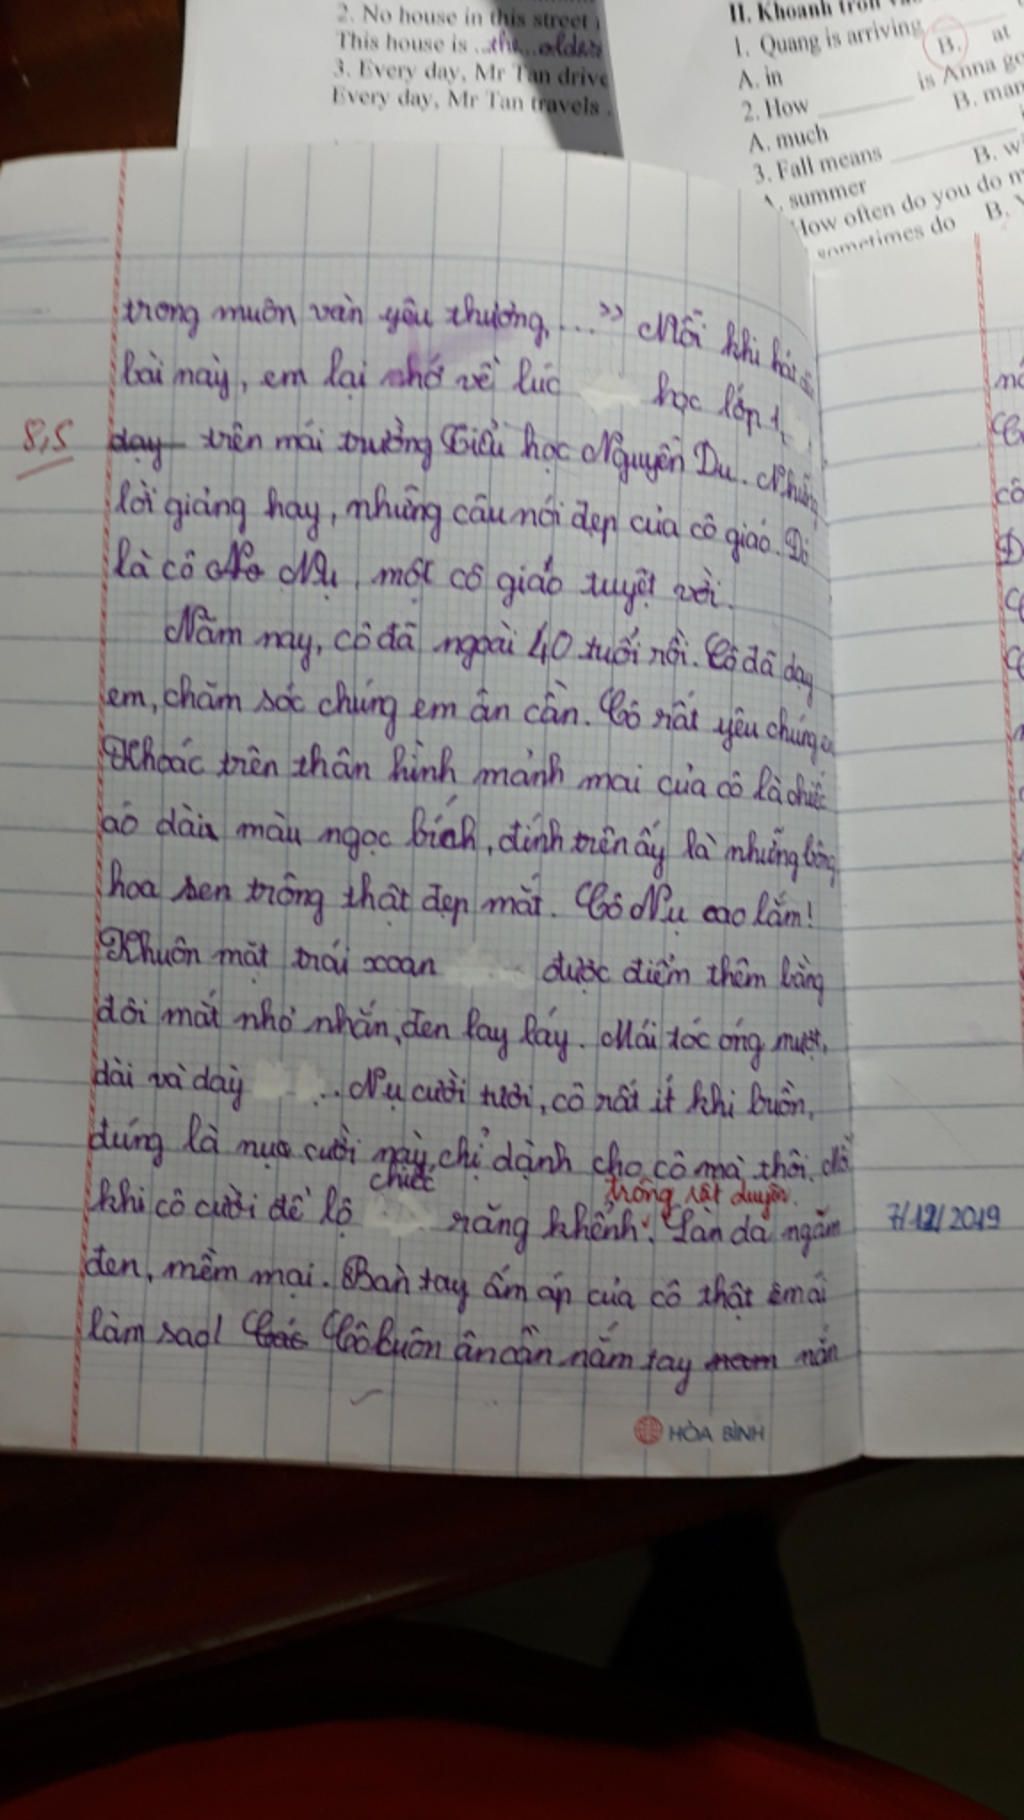 2. No house in this street
This house is ...the...oldes
3. Every day, Mr Tan drive
Every day, Mr Tan travels .
II. Khoanh tròn
1. Quang is arriving
A. in
B. at
2. How ________ is Anna go
A. much
B. man
3. Fall means ________
A. summer
B. w
How often do you do m
sometimes do
B.
trong muôn vàn yêu thương, ...” Mỗi khi hát
bài này, em lại nhớ về lúc học lớp 1,
8,5
dạy trên mái trường Tiểu học Nguyễn Du. Những
lời giảng hay, những câu nói đẹp của cô giáo. Đó
là cô Nụ, một cô giáo tuyệt vời.
Năm nay, cô đã ngoài 40 tuổi rồi. Cô đã dạy
em, chăm sóc chúng em ân cần. Cô rất yêu chúng em
Khoác trên thân hình mảnh mai của cô là chiếc
áo dài màu ngọc bích, đính trên ấy là những bông
hoa sen trông thật đẹp mắt. Cô Nụ cao lắm!
Khuôn mặt trái xoan được điểm thêm bằng
đôi mắt nhỏ nhắn, đen lay láy. Mái tóc óng mượt,
dài và dày ... Nụ cười tươi, cô rất ít khi buồn,
đúng là nụ cười này chỉ dành cho cô mà thôi.
chiếc
trông rất duyên.
khi cô cười để lộ răng khểnh. Làn da ngăm
7/12/2019
đen, mềm mại. Bàn tay ấm áp của cô thật êm ái
làm sao! Cô luôn ân cần nắm tay nắn
HÒA BÌNH